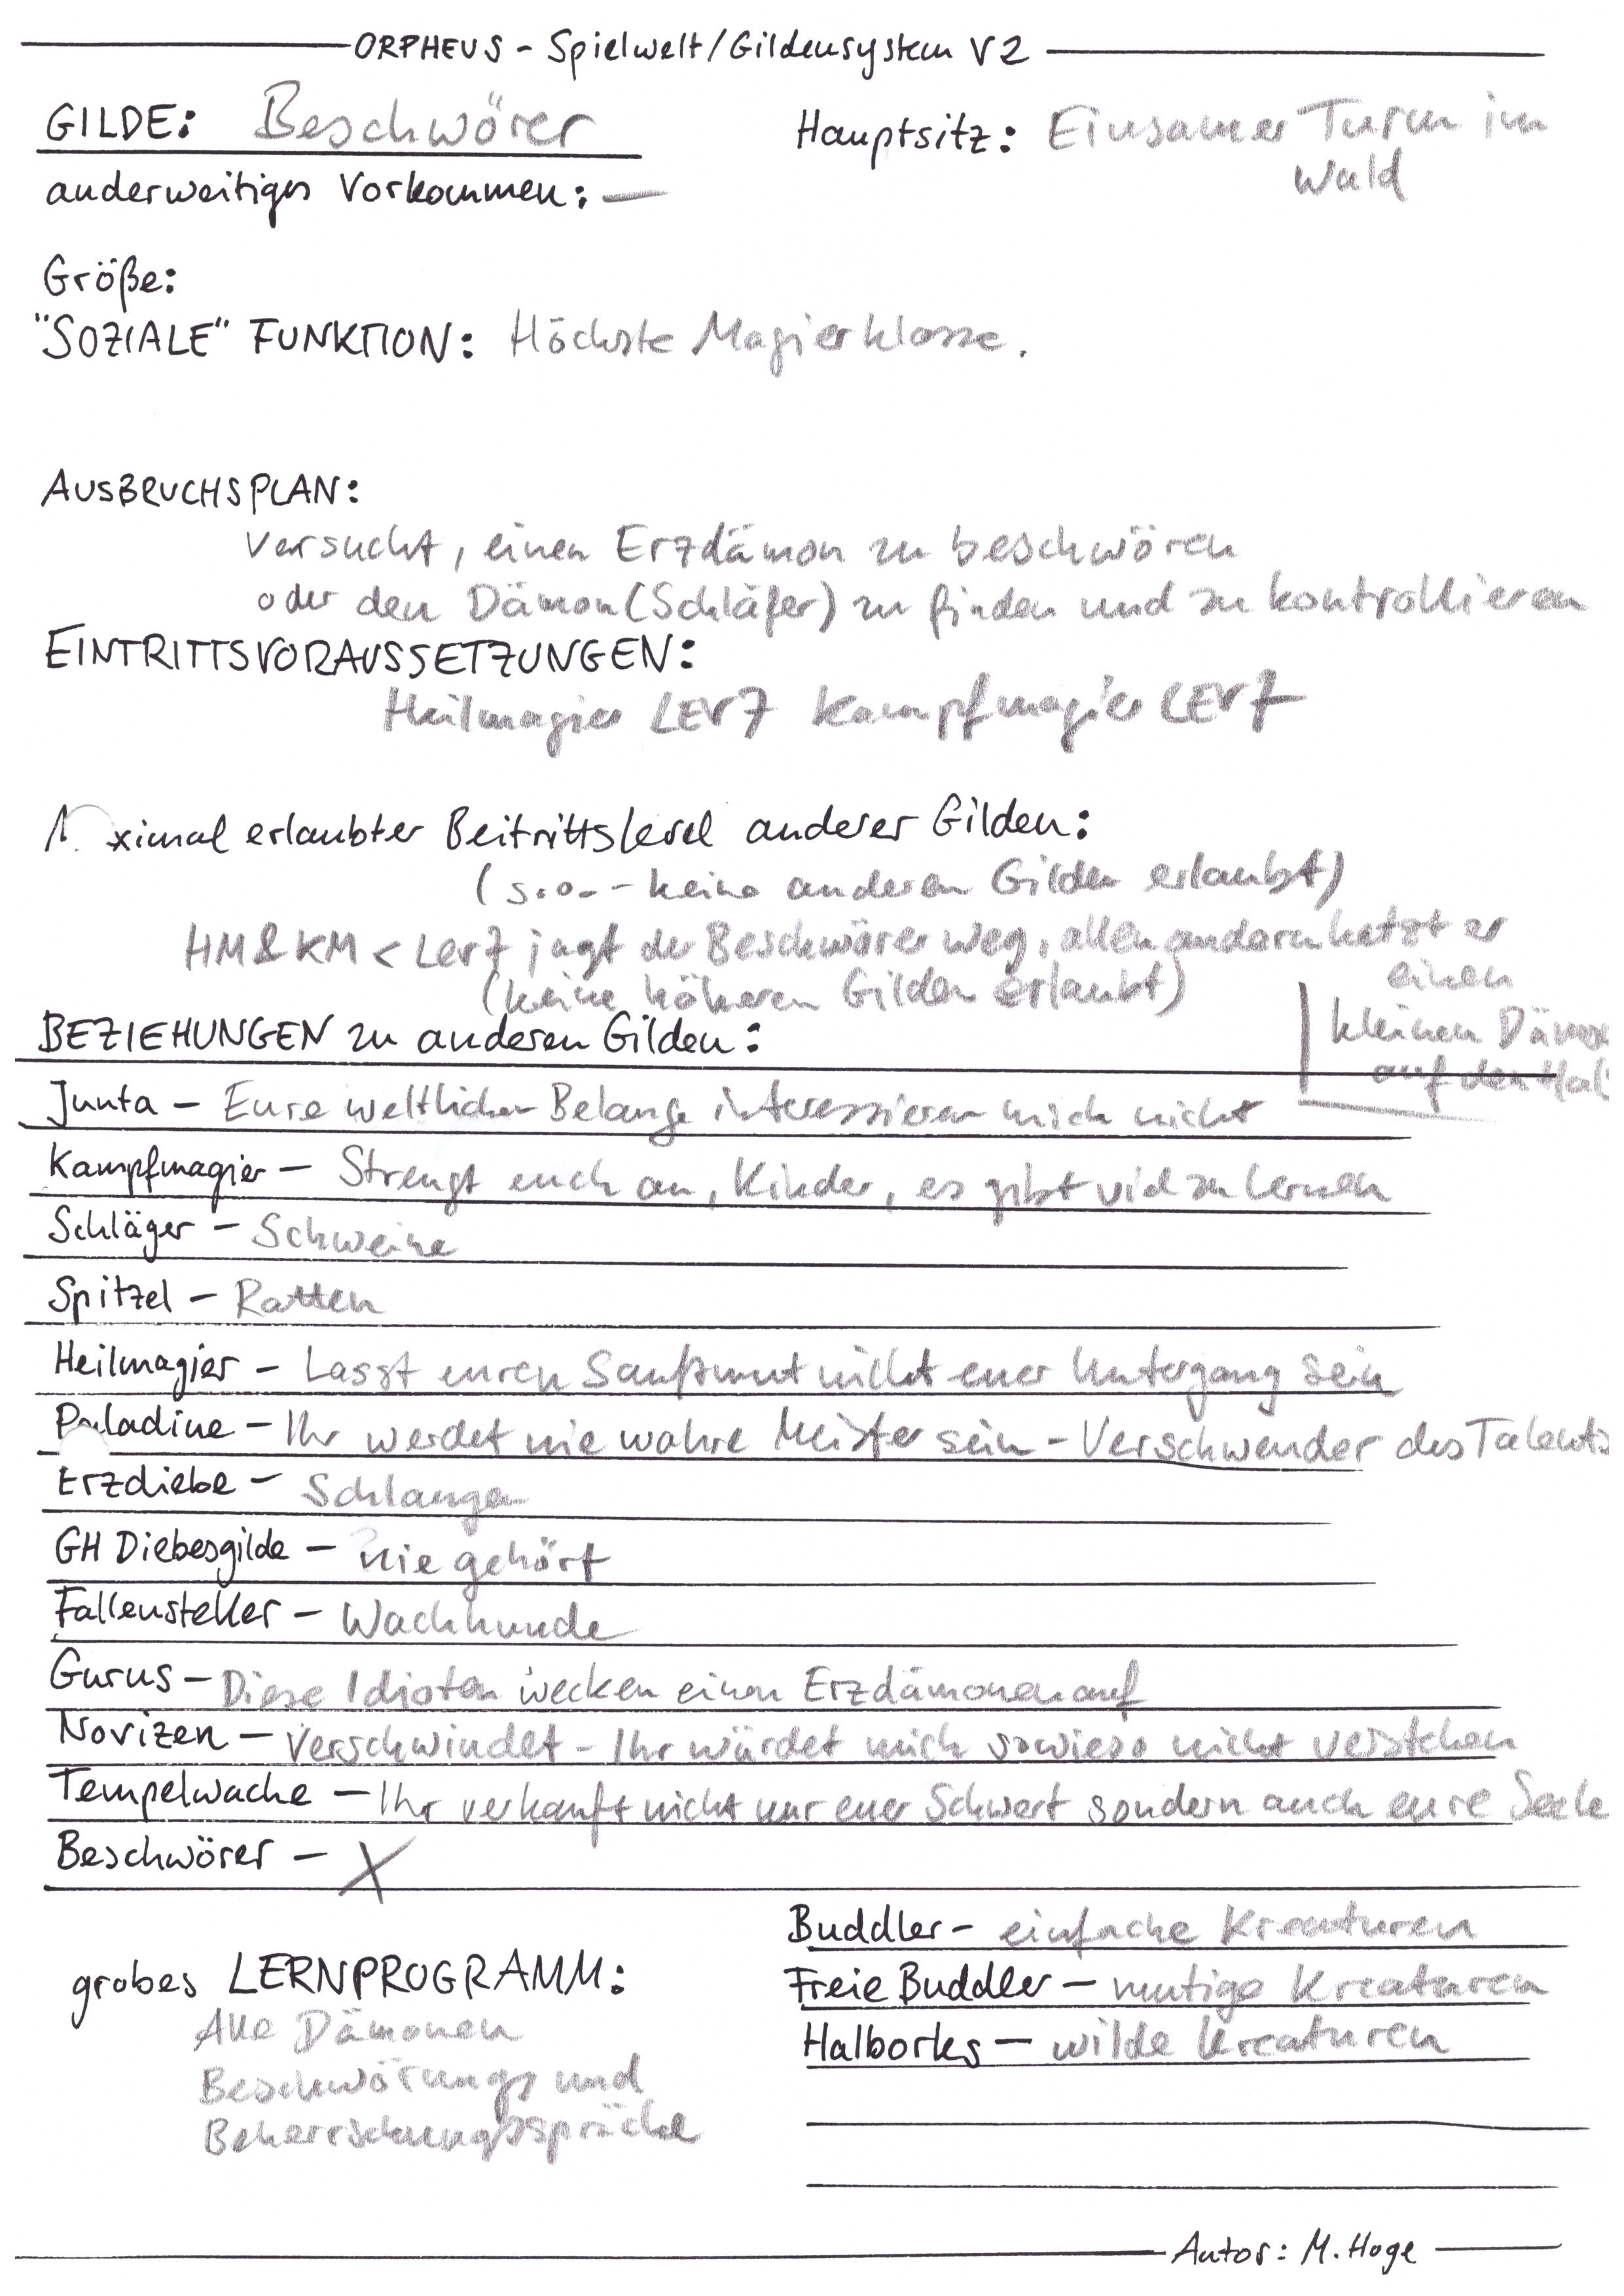 ORPHEUS - Spielwelt/Gildensystem V2
GILDE: Beschwörer
Hauptsitz: Einsamer Turm im
Wald
anderweitiges Vorkommen: —
Größe:
"SOZIALE" FUNKTION: Höchste Magierklasse.
AUSBRUCHSPLAN:
versucht, einen Erzdämon zu beschwören
oder den Dämon (Schläfer) zu finden und zu kontrollieren
EINTRITTSVORAUSSETZUNGEN:
Heilmagier LEV7 Kampfmagier LEV7
ximal erlaubter Beitrittslevel anderer Gilden:
(s.o. - keine anderen Gilden erlaubt)
HM & KM < Lev7 jagt der Beschwörer weg, allen andern hetzt er
einen
(keine höheren Gilden erlaubt)
kleinen Dämon
auf den Hals
BEZIEHUNGEN zu anderen Gilden:
Junta - Eure weltlichen Belange interessieren mich nicht
Kampfmagier - Strengt euch an, Kinder, es gibt viel zu lernen
Schläger - Schweine
Spitzel - Ratten
Heilmagier - Lasst euren Sanftmut nicht euer Untergang sein
Paladine - Ihr werdet nie wahre Meister sein - Verschwender des Talents
Erzdiebe - Schlangen
GH Diebesgilde - nie gehört
Fallensteller - Wachhunde
Gurus - Diese Idioten wecken einen Erzdämonen auf
Novizen - Verschwindet - Ihr würdet mich sowieso nicht verstehen
Tempelwache - Ihr verkauft nicht nur euer Schwert sondern auch eure Seele
Beschwörer - X
Buddler - einfache Kreaturen
Freie Buddler - mutige Kreaturen
Halborks - wilde Kreaturen
grobes LERNPROGRAMM:
Alle Dämonen
Beschwörungs und
Beherrschungssprüche
Autor: M. Hoge